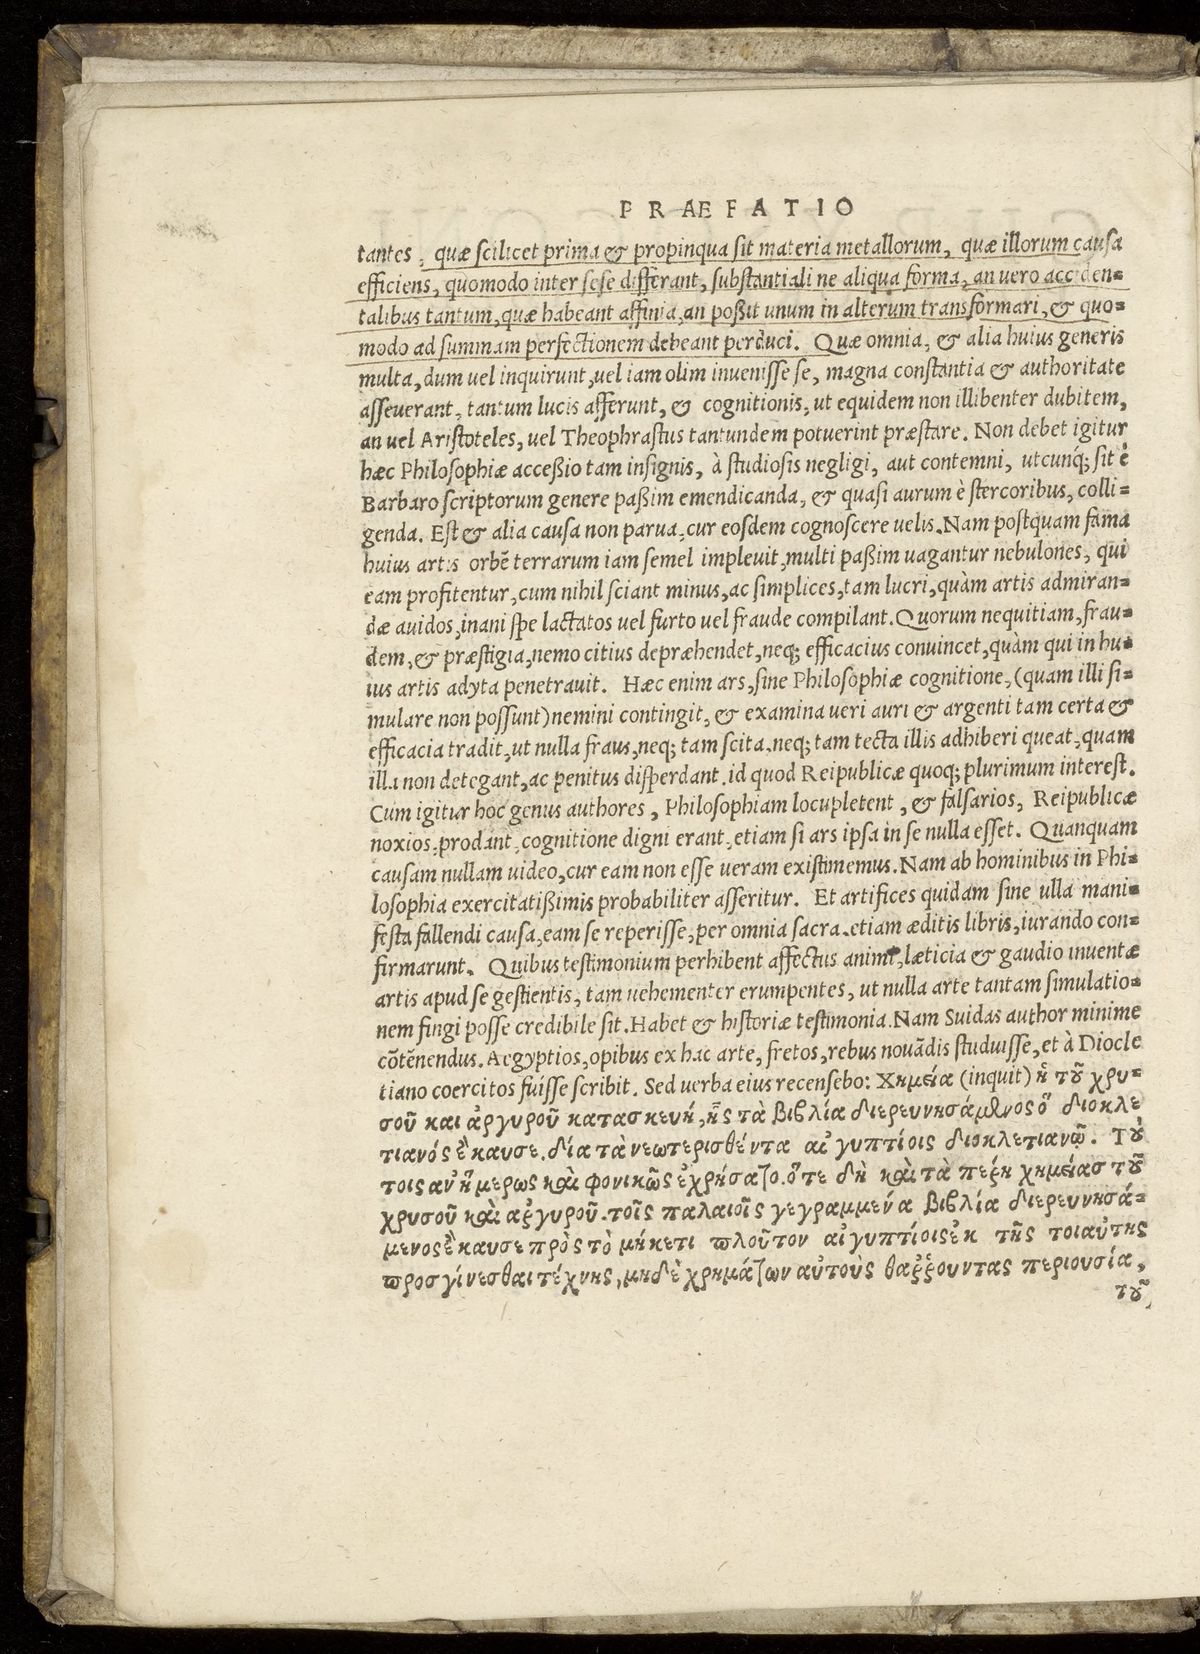 PRÆFATIO
tantes, quæ scilicet prima & propinqua sit materia metallorum, quæ illorum causa
efficiens, quomodo inter sese differant, substantiali ne aliqua forma, an vero acciden=
talibus tantum, quæ habeant affinia, an poßit unum in alterum transformari, & quo=
modo ad summam perfectionem debeant perduci. Quæ omnia, & alia huius generis
multa, dum uel inquirunt, uel iam olim inuenisse se, magna constantia & authoritate
asseuerant, tantum lucis afferunt, & cognitionis, ut equidem non illibenter dubitem,
an uel Aristoteles, uel Theophrastus tantundem potuerint præstare. Non debet igitur
hæc Philosophiæ acceßio tam insignis, à studiosis negligi, aut contemni, utcunq; sit è
Barbaro scriptorum genere paßim emendicanda, & quasi aurum è stercoribus, colli=
genda. Est & alia causa non parua, cur eosdem cognoscere uelis. Nam postquam fama
huius artis orbē terrarum iam semel impleuit, multi paßim uagantur nebulones, qui
eam profitentur, cum nihil sciant minus, ac simplices, tam lucri, quàm artis admiran=
dæ auidos, inani spe lactatos uel furto uel fraude compilant. Quorum nequitiam, frau=
dem, & præstigia, nemo citius depræhendet, neq; efficacius conuincet, quàm qui in hu=
ius artis adyta penetrauit. Hæc enim ars, sine Philosophiæ cognitione, (quam illi si=
mulare non possunt) nemini contingit, & examina ueri auri & argenti tam certa &
efficacia tradit, ut nulla fraus, neq; tam scita, neq; tam tecta illis adhiberi queat, quam
illa non detegant, ac penitus disperdant, id quod Reipublicæ quoq; plurimum interest.
Cum igitur hoc genus authores, Philosophiam locupletent, & falsarios, Reipublicæ
noxios, prodant, cognitione digni erant, etiam si ars ipsa in se nulla esset. Quanquam
causam nullam uideo, cur eam non esse ueram existimemus. Nam ab hominibus in Phi=
losophia exercitatißimis probabiliter asseritur. Et artifices quidam sine ulla mani=
festa fallendi causa, eam se reperisse, per omnia sacra, etiam æditis libris, iurando con=
firmarunt. Quibus testimonium perhibent affectus animi, læticia & gaudio inuentæ
artis apud se gestientis, tam uehementer erumpentes, ut nulla arte tantam simulatio=
nem fingi posse credibile sit. Habet & historiæ testimonia. Nam Suidas author minime
cōtēnendus. Aegyptios, opibus ex hac arte, fretos, rebus nouādis studuisse, et à Diocle
tiano coercitos fuisse scribit. Sed uerba eius recensebo: Χημεία (inquit) ἡ τοῦ χρυ=
σοῦ και ἀργυροῦ κατασκευή, ἧς τὰ βιβλία διερευνησάμενος ὅ διοκλε
τιανός ἔκαυσε. δία τὰ νεωτερισθέντα αἰγυπτίοις διοκλετιανῷ. Τού
τοις ἀνἥμερως καὶ φονικῶς ἐχρήσατο. ὅτε δὴ καὶ τὰ περὶ χημείας τοῦ
χρυσοῦ καὶ αργυροῦ. τοῖς παλαιοῖς γεγραμμενα βιβλία διερευνησά=
μενος ἔκαυσε πρὸς τὸ μήκετι πλοῦτον αἰγυπτίοις ἐκ τῆς τοιαύτης
προσγίνεσθαι τέχνης, μηδὲ χρημάτων αὐτοὺς θαῤῥουντας περιουσία,
τοῦ